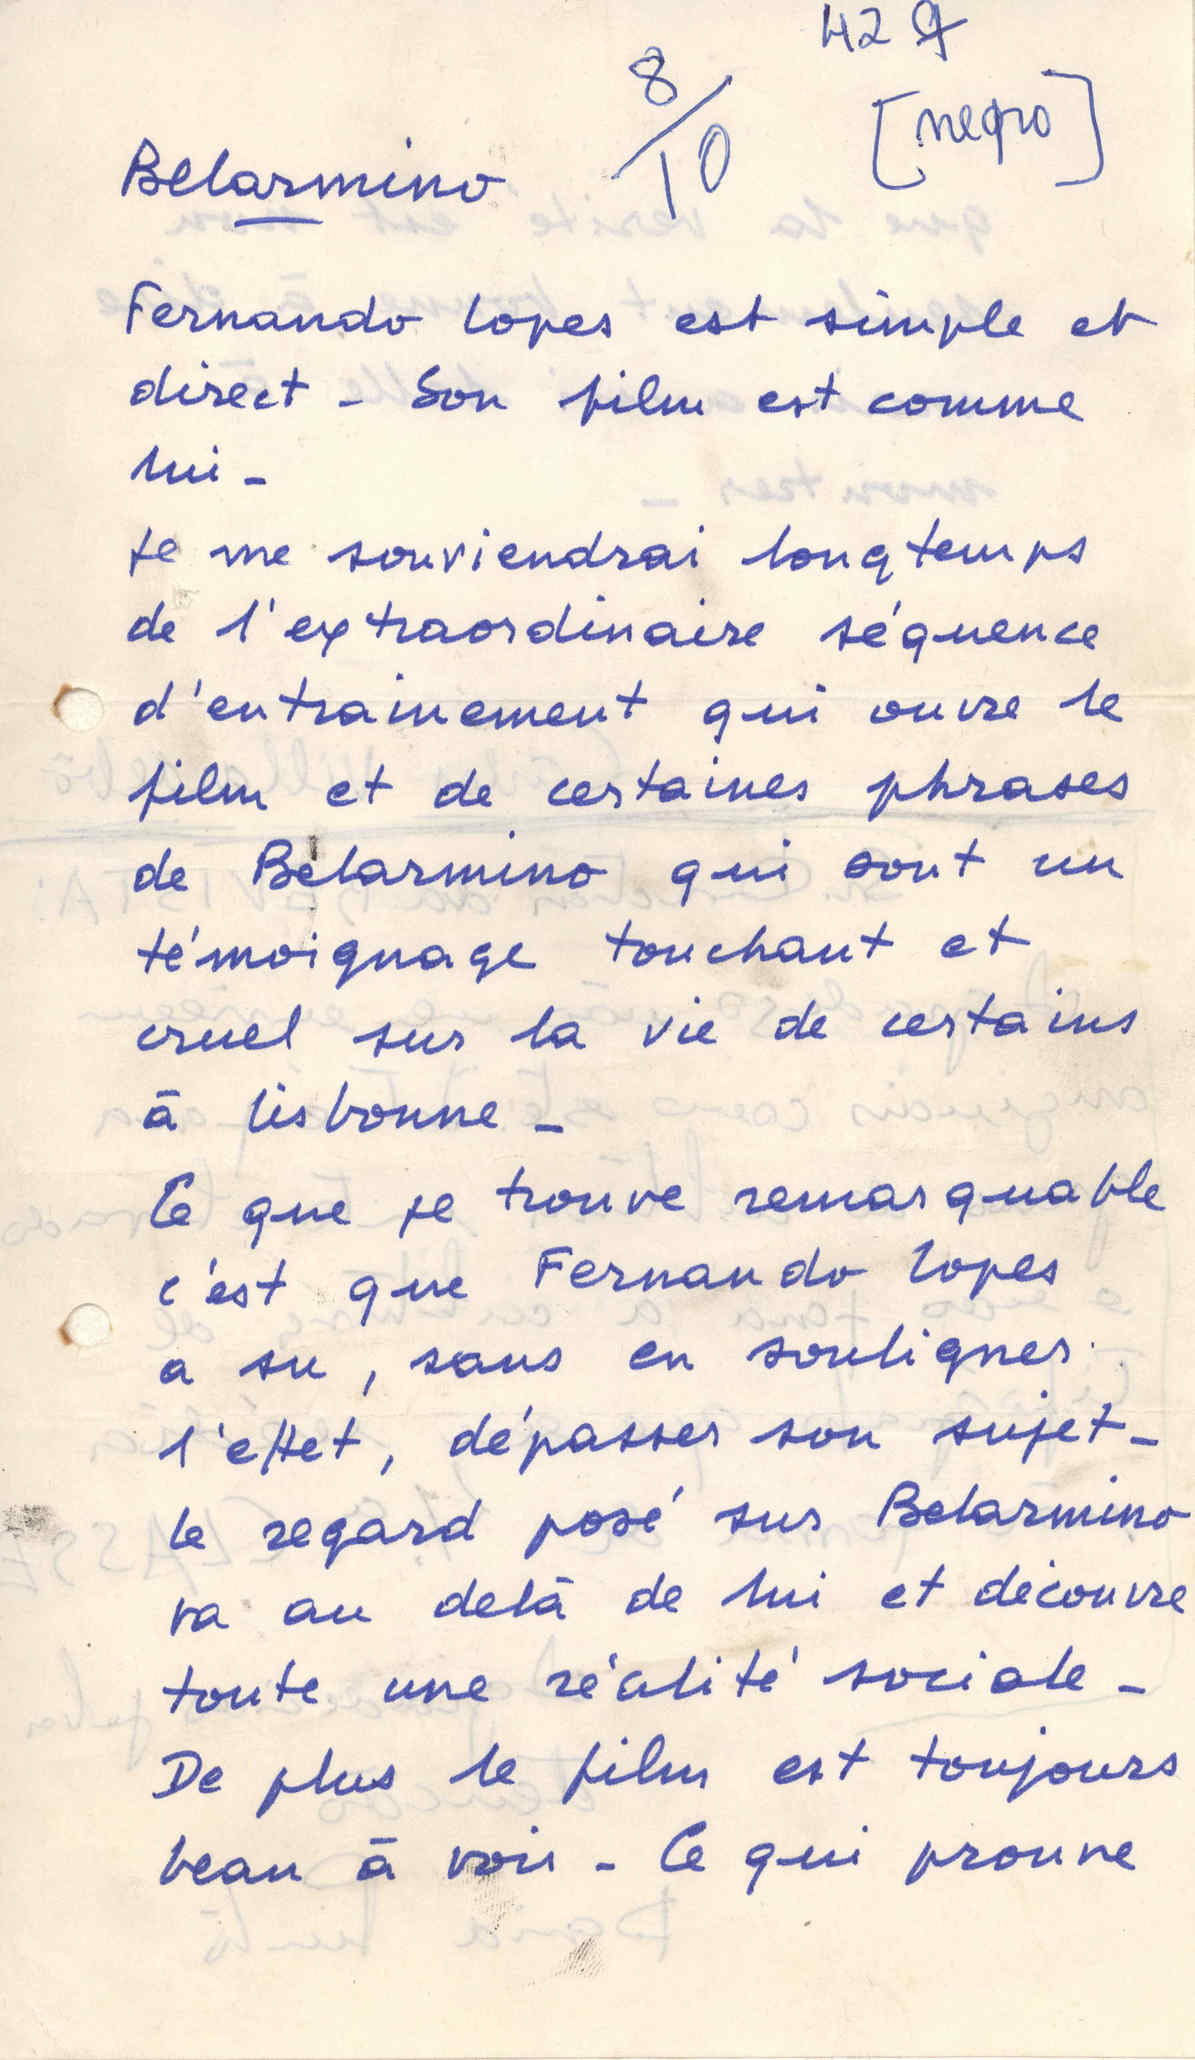 427
8/10
[negro]
Belarmino
Fernando Lopes est simple et
direct - Son film est comme
lui -
Je me souviendrai longtemps
de l'extraordinaire séquence
d'entrainement qui ouvre le
film et de certaines phrases
de Belarmino qui sont un
témoignage touchant et
cruel sur la vie de certains
à Lisbonne -
Ce que je trouve remarquable
c'est que Fernando Lopes
a su, sans en souligner
l'effet, dépasser son sujet -
Le regard posé sur Belarmino
va au delà de lui et découvre
toute une réalité sociale -
De plus le film est toujours
beau à voir - Ce qui prouve